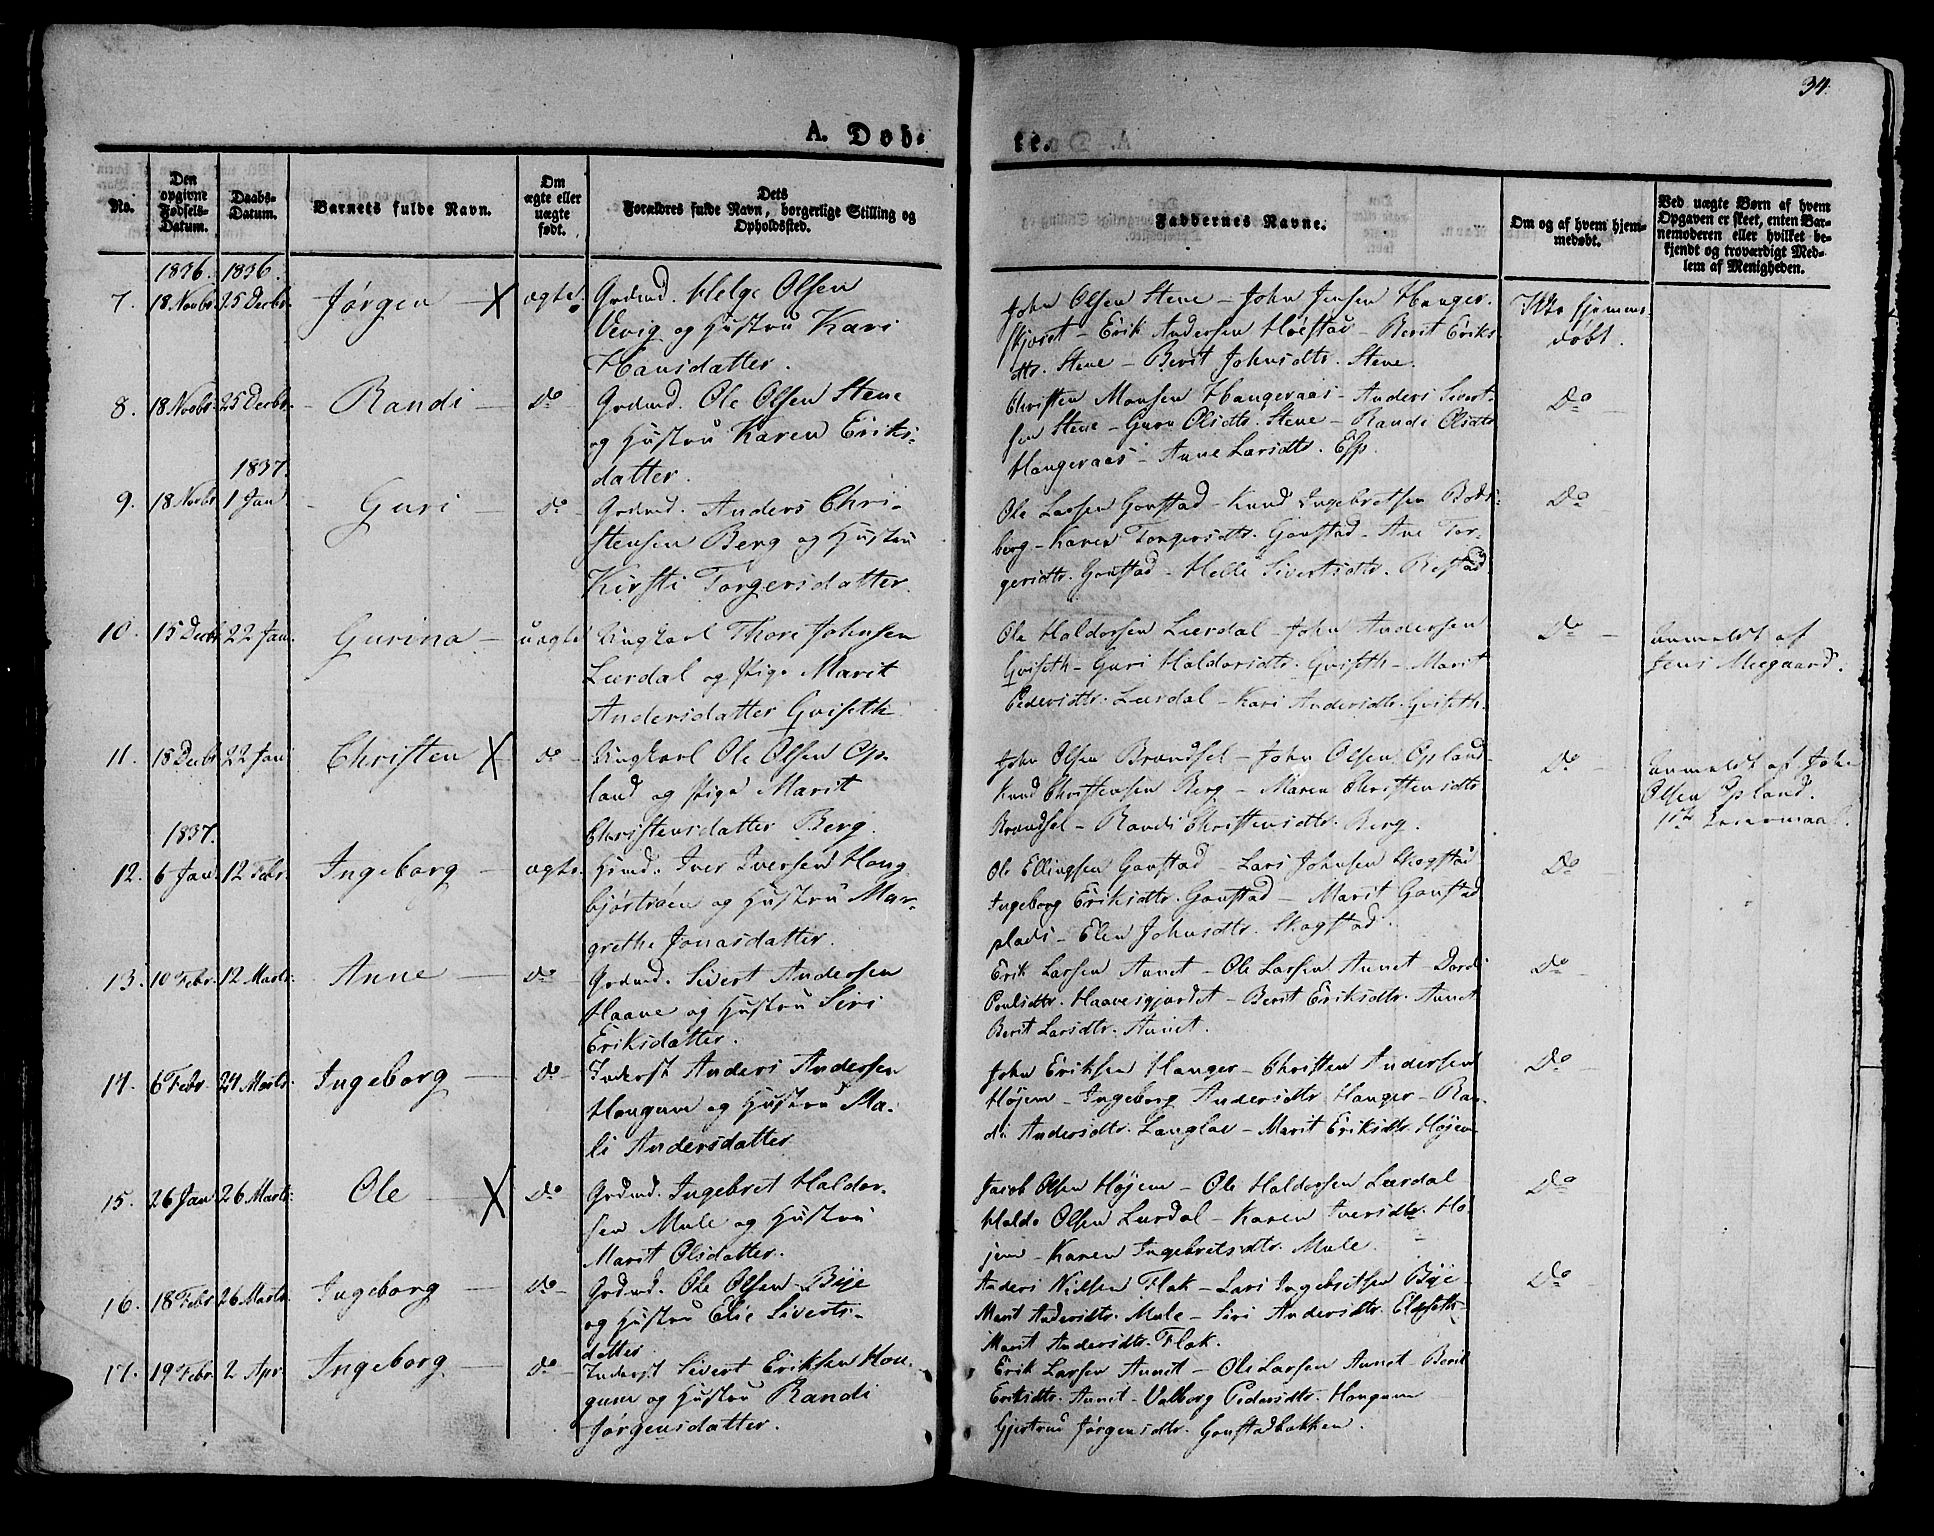 34.
A. Døb-
te.
No.
Den opgivne Fødsels-Datum.
Daabs-Datum.
Barnets fulde Navn.
Om ægte eller uægte født.
Dets Forældres fulde Navn, borgerlige Stilling og Opholdssted.
Faddernes Navne.
Om og af hvem hjem-
medøbt.
Ved uægte Børn af hvem
Opgaven er skeet, enten Bar-
nemoderen eller hvilket be-
kjendt og troværdigt Med-
lem af Menigheden.
1836. 1836.
7. 18 Novbr 25 Decbr. Jørgen X ægte. Grdmd. Helge Olsen
Vevig og Hustru Kari
Hansdatter.
John Olsen Stene - John Jensen Hanger-
skjvret - Erik Andersen Høestad - Berit Eriks
dtr. Stene - Berit Johnsdtr. Stene.
Ikke hjemme
døbt.
8. 18 Novbr. 25 Decbr. - Randi - do - Grdmd. Ole Olsen Stene
og Hustru Karen Eriks-
datter.
Christen Monsen Haugeraas - Anders Sivert-
sen Stene - Guru Olsdtr. Stene - Randi Olsdtr
Haugeraas - Anne Larsdtr. Esp.
Do
1837.
9. 18 Novbr 1 Jan - Guri - do - Grdmd. Anders Chri-
stensen Berg og Hustru
Kirsti Torgersdatter.
Ole Larsen Gonstad - Knud Ingebretsen
berg - Karen Torgersdtr. Gonstad - Ane Tor-
gersdtr. Gonstad - Helle Sivertsdtr. Restad
Do
10. 15 Decbr 22 Jan. Gurina - uægte Ungkarl Thore Johnsen
Lurdal og Pige Marit
Andersdatter Gviseth.
Ole Haldorsen Lurdal - John Andersen
Gviseth - Guri Haldorsdtr. Gviseth - Marit
Pedersdtr. Lurdal - Kari Andersdtr. Gviseth.
Do -
anmeldt af
Jens Meegaard.
11. 18 Decbr 22 Jan Christen X do - Ungkarl Ole Olsen Op-
land og Pige Marit
Christensdatter Berg.
John Olsen Brandsel - John Olsen Opland -
Knud Christensen Berg - Maren Christensdtr
Brandsel - Randi Christensdtr. Berg.
Do -
anmeldt af John
Olsen Opland.
1ste Leiermaal.
1837.
12. 6 Jan. 12 Febr. Ingeborg - ægte. Hmd. Iver Iversen Haug
bjørtrøen og Hustru Mar-
grethe Jonasdatter.
Ole Ellingsen Gonstad - Lars Johnsen Skogstad
Ingeborg Eriksdtr. Gonstad - Marit Gonstad
plads - Elen Johnsdtr. Skogstad.
Do
13. 10 Febr. 12 Marts Anne - do Grdmd. Sivert Andersen
Haave og Hustru Siri
Eriksdatter.
Erik Larsen Aunet - Ole Larsen Aunet - Dordi
Poulsdtr. Haavesgjerdet - Berit Eriksdtr. Aunet
Berit Larsdtr. Aunet.
Do -
14. 6 Febr. 24 Marts. Ingeborg - do - Inderst Anders Andersen
Haugum og Hustru Ma-
li Andersdatter
John Eriksen Hanger - Christen Andersen
Højem - Ingeborg Andersdtr Hanger - Ran-
di Andersdtr. Langlae - Marit Eriksdtr. Højem
Do
15. 26 Jan 26 Marts. Ole - X do Grdmd. Ingebret Haldor-
sen Mule og Hustru
Marit Olsdatter.
Jacob Olsen Højem - Ole Haldorsen Lurdal
Haldo Olsen Lurdal - Karen Iversdtr. Hø-
jem - Karen Ingebretsdtr. Mule.
Do -
16. 18 Febr 26 Marts. Ingeborg - do - Grdmd. Ole Olsen Bye
og Hustru Elie Siverts-
datter
Anders Nilsen Flak - Lars Ingebretsen Bye -
Marit Andersdtr. Mule - Siri Andersdtr. Eldseth -
Marit Andersdtr. Flak.
Do -
17. 19 Febr. 2 Apr. Ingeborg - do - Inderst Sivert Eriksen Hau-
gum og Hustru Randi
Jørgensdatter.
Erik Larsen Aunet - Ole Larsen Aunet - Berit
Eriksdtr. Aunet - Valborg Pedersdtr. Haugum
Gjertrud Jørgensdtr. Gonstadbakken.